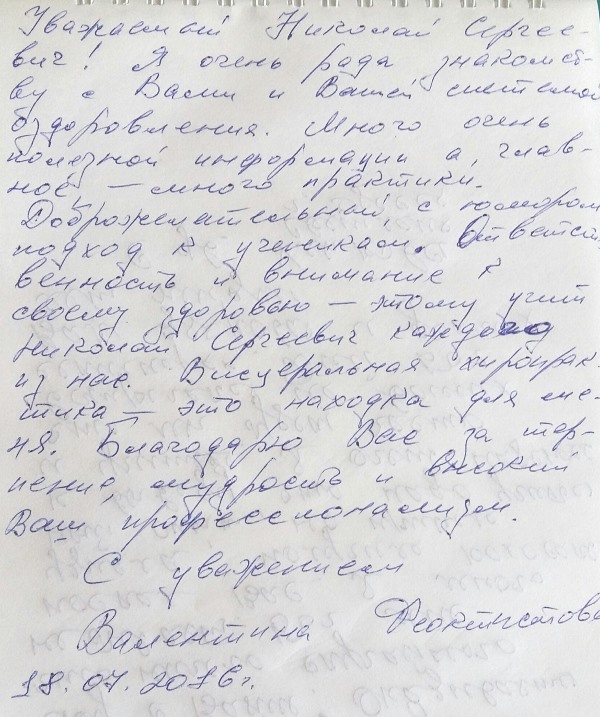 Уважаемый Николай Сергее-
вич! Я очень рада знакомст-
ву с Вами и Вашей системой
оздоровления. Много очень
полезной информации а, глав-
ное, – много практики.
Доброжелательный, с юмором
подход к ученикам. Ответст-
венность и внимание к
своему здоровью – этому учит
Николай Сергеевич каждого
из нас. Висцеральная хиропрак-
тика – это находка для ме-
ня. Благодарю Вас за тер-
пение, мудрость и высокий
Ваш профессионализм.
С уважением
Валентина Феоктистова
18.07.2016г.